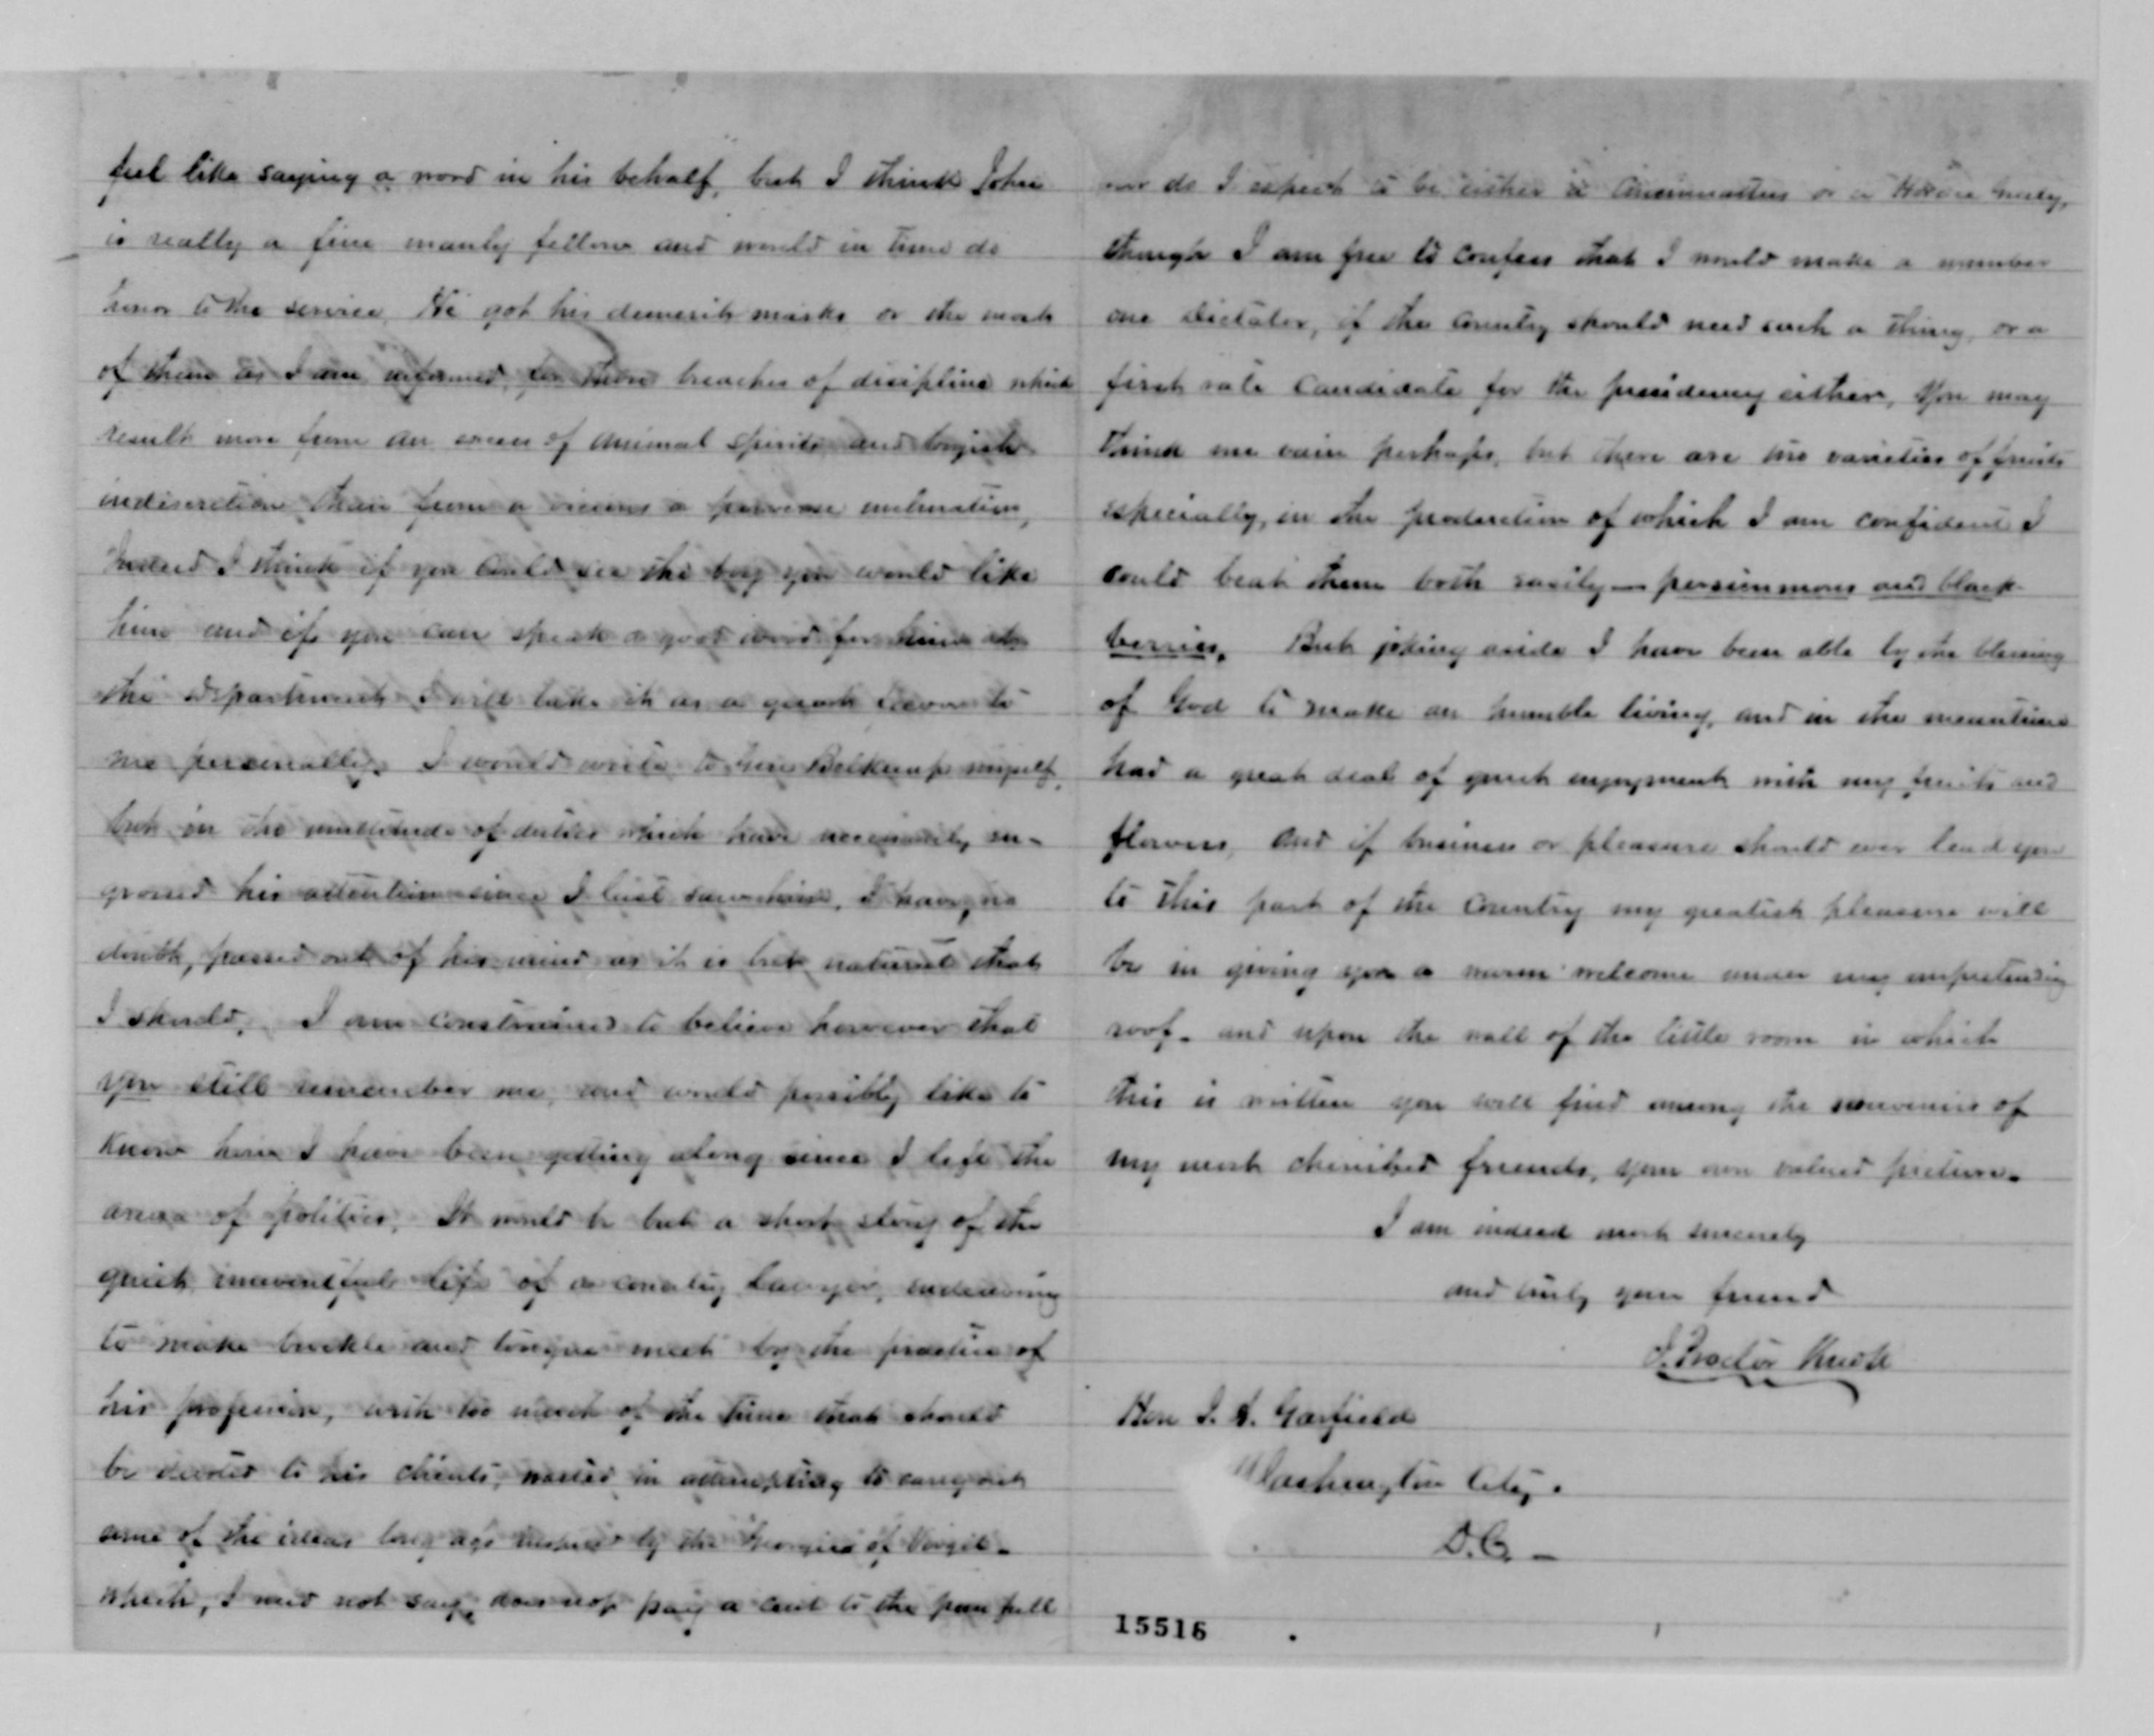 feel like saying a word in his behalf, but I think John
is really a fine manly fellow and would in time do
honor to the service. He got his demerit marks or the most
of them as I am informed, for those breaches of disipline which
result more from an excess of animal spirits and boyish
indiscretion than from a vicious or perverse inclination,
Indeed I think if you could see the boy you would like
him and if you can speak a good word for him at
the department I will take it as a great favor to
me personally. I would write to Gen Belknap myself,
but in the multitude of duties which have necessarily en-
grossed his attention since I last saw him, I have, no
doubt, passed out of his mind as it is but natural that
I should. I am constrained to believe however that
you still remember me, and would possibly like to
know how I have been getting along since I left the
arena of politics. It would be but a short story of the
quiet uneventful life of a country lawyer, endeavoring
to make buckle and tongue meet by the practice of
his profession, with too much of the time that should
be devoted to his clients, wasted in attempting to carry out
some of the ideas long ago instilled by the Georgics of Virgil-
which, I need not say, does not pay a cent to the pan full
nor do I expect to be either a Cincinnattus or a Horace Greely,
though I am free to confess that I would make a number
one dictator, if the country should need such a thing, or a
first rate candidate for the presidency either, You may
think me vain perhaps, but there are two varieties of fruits
especially, in the production of which I am confident I
could beat them both easily — persimmons and black-
berries. But joking aside I have been able by the blessing
of God to make an humble living, and in the meantime
had a great deal of quiet enjoyment with my fruits and
flowers, and if business or pleasure should ever lead you
to this part of the country my greatest pleasure will
be in giving you a warm welcome under my unpretending
roof - and upon the wall of the little room in which
this is written you will find among the souvenirs of
my most cherished friends, your own valued picture.
I am indeed most sincerely
and truly your friend
J. Proctor Knott
Hon J. A. Garfield
Washington City.
D.C. —
15516